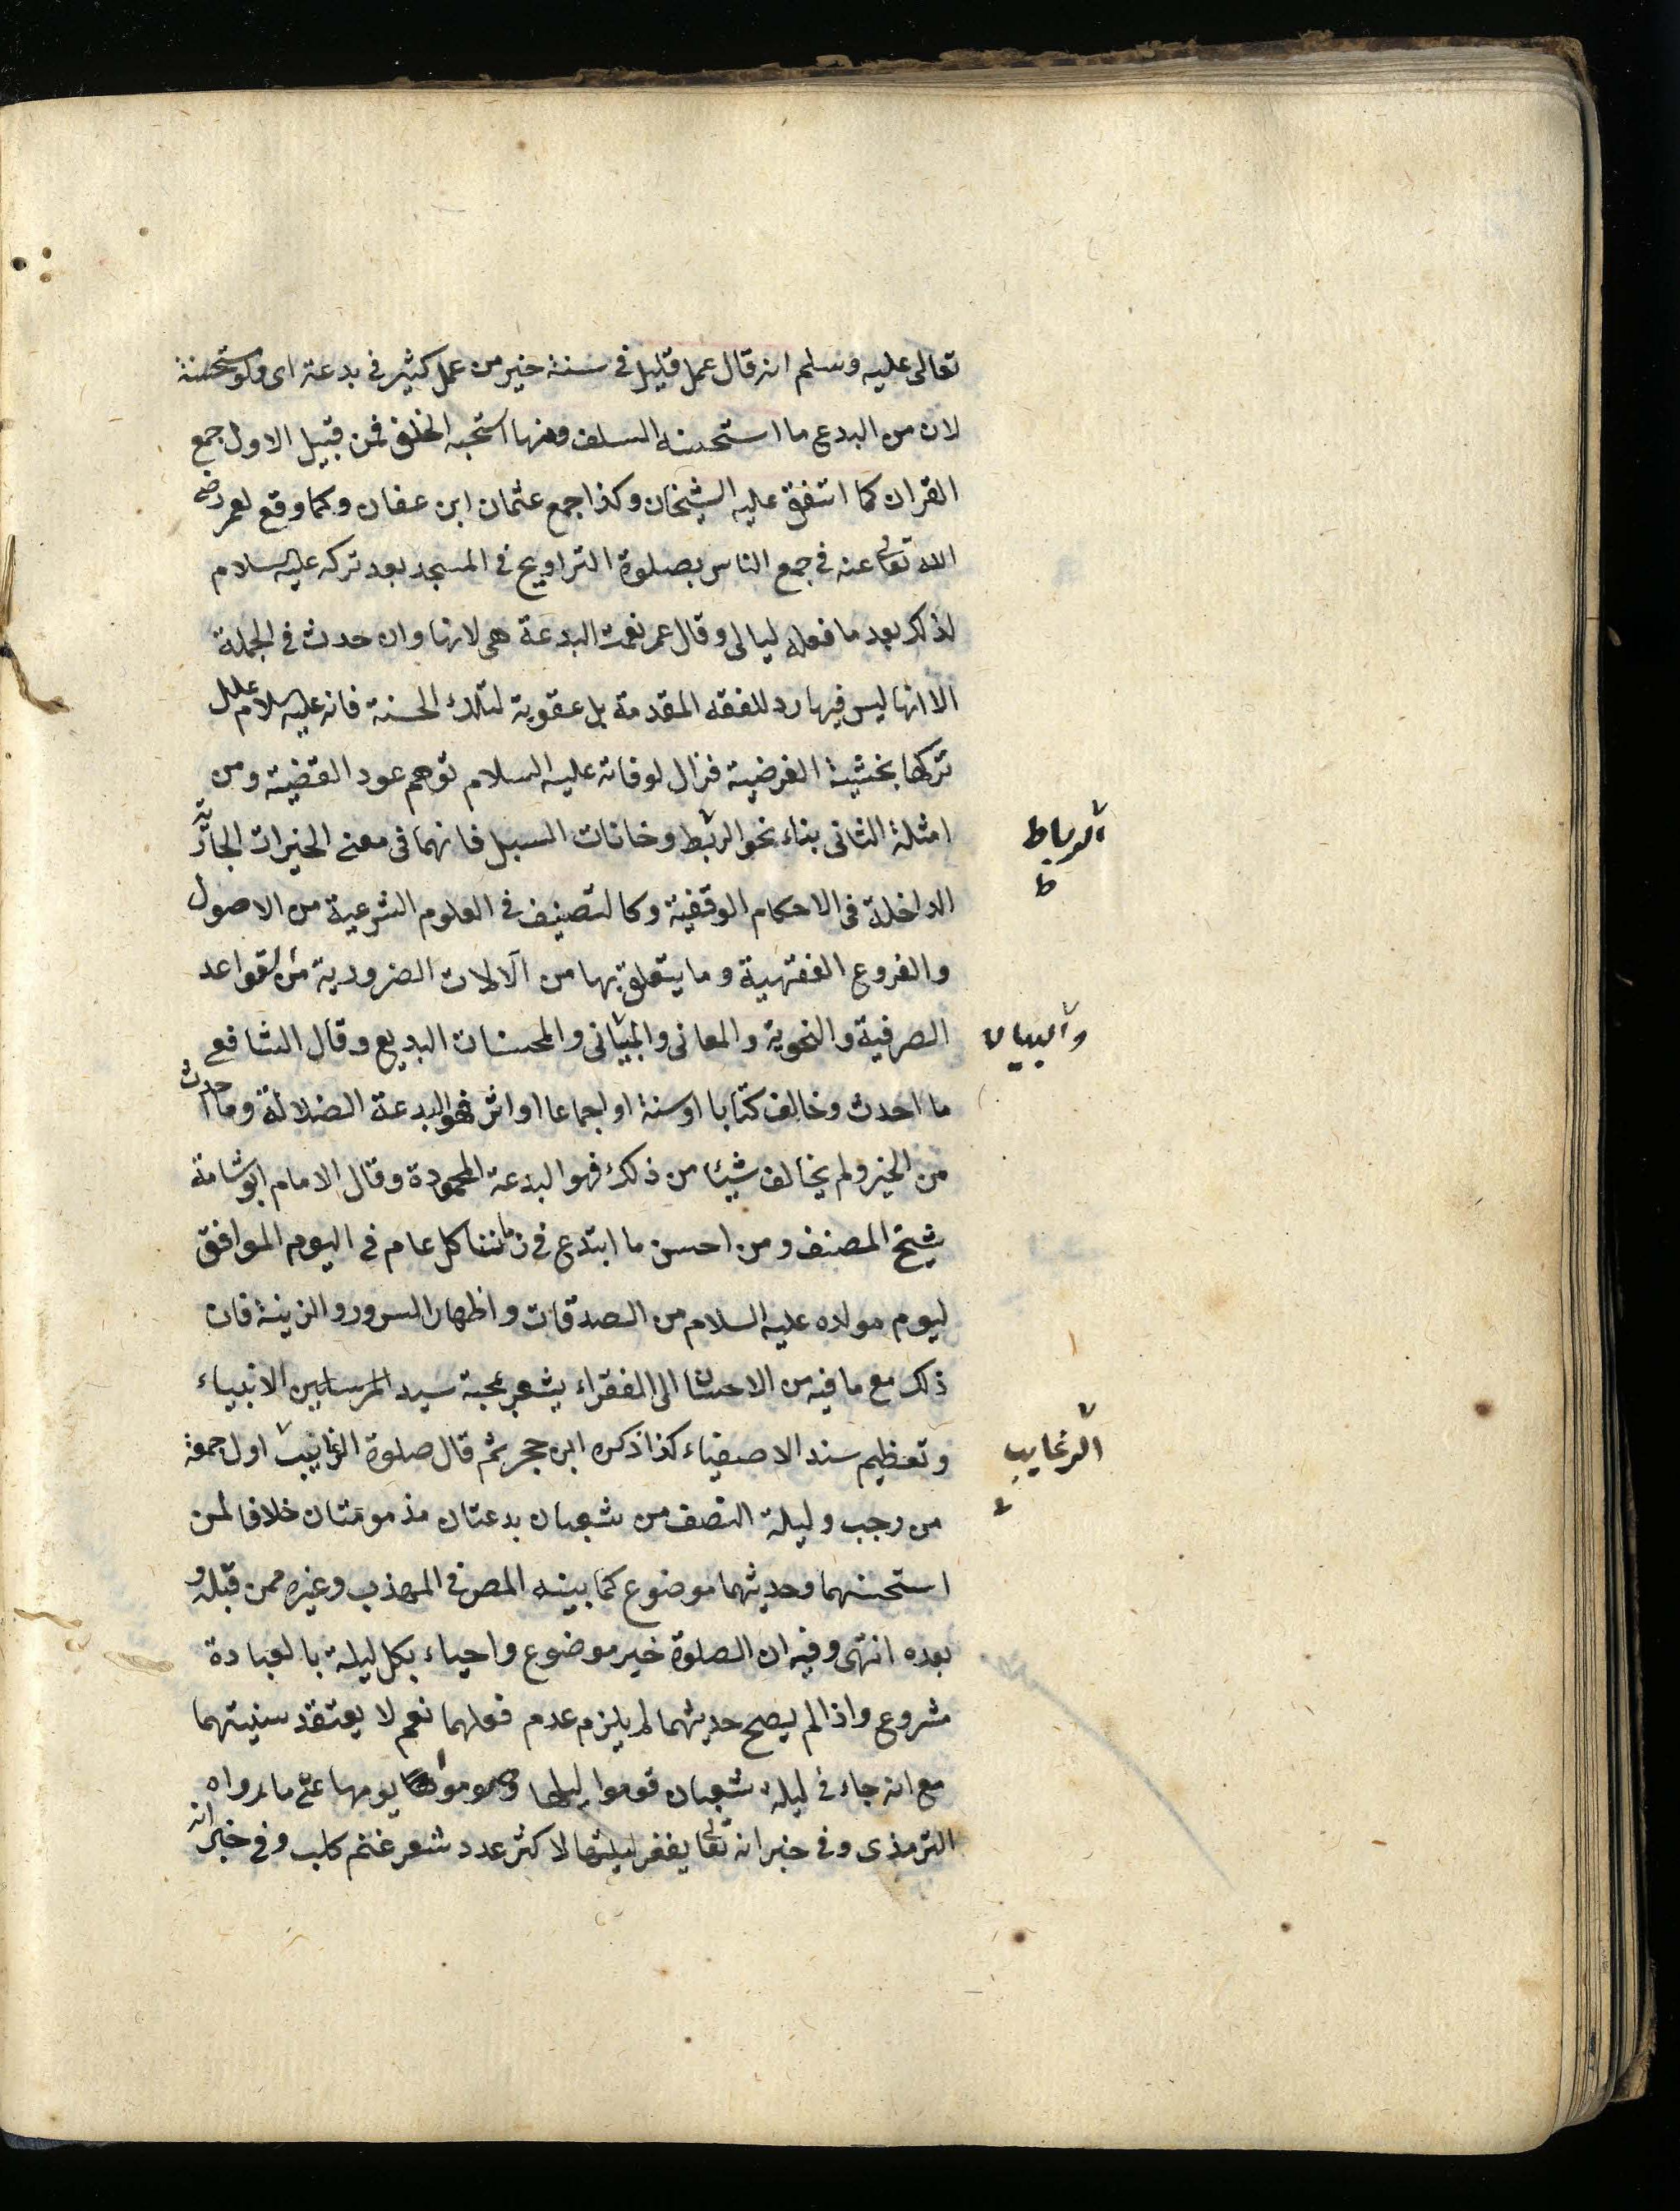 تعالى عليه وسلم انه قال عمل قليل فى سنة خير من عمل كثير فى بدعة اى ولو مستحسنة
لان من البدع ما استحسنه السلف ومنها استحبه الخلف فمن قبيل الاول جمع
القران كما اتفق عليه الشيخان وكذا جمع عثمان ابن عفان وكما وقع لعمر رضى
الله تعالى عنه فى جمع الناس بصلوة التراويح فى المسجد بعد تركه عليه السلام
لذلك بعد ما فعله ليالى وقال عمر نعمت البدعة هى لانها وان حدث فى الجملة
الا انها ليس فيها رد للفقه المقدمة بل عقوبة لتلك الحسنة فانه عليه السلام علل
تركها بخشية الفرضية فزال لوفاته عليه السلام توهم عود القضية ومن
امثلة الثانى بناء نحو الربط وخانات السبل فانهما فى معنى الخيرات الجارية
الداخلة فى الاحكام الوقفية وكالتصنيف فى العلوم الشرعية من الاصول
والفروع الفقهية وما يتعلق بها من آلالات الضرورية من القواعد
الصرفية والنحوية والمعانى والمبانى والمحسنات البديع وقال الشافعى
ما احدث وخالف كتابا او سنة او اجماعا او اثر فهو البدعة الضلالة وما احدث
من الخير ولم يخالف شيئا من ذلك فهو البدعة المحمودة وقال الامام ابو شامة
شيخ المصنف ومن احسن ما ابتدع فى زماننا كل عام فى اليوم الموافق
ليوم مولاه عليه السلام من الصدقات واظهار السرور والزينة فان
ذلك مع ما فيه من الاحسان الى الفقراء يشعر بمحبة سيد المرسلين الانبياء
وتعظيم سند الاصفياء كذا ذكره ابن حجر ثم قال صلوة الرغايب اول جمعة
من رجب وليلة النصف من شعبان بدعتان مذمومتان خلافا لمن
استحسنهما وحديثهما موضوع كما بينه المص فى المهذب وغيره ممن قبله و
بعده انتهى وفيه ان الصلوة خير موضوع واحياء بكل ليلة بالعبادة
مشروع واذا لم يصح حديثهما لم يلزم عدم فعلهما نعم لا يعتقد سنيتهما
مع انه جاء فى ليلة شعبان قوموا ليلها وصوموا يومها على ما رواه
الترمذى وفى خبر انه تعالى يغفر ليلتها لاكثر عدد شعر غنم كلب وفى خبر انه
الرباط
ط
والبيان
الرغايب